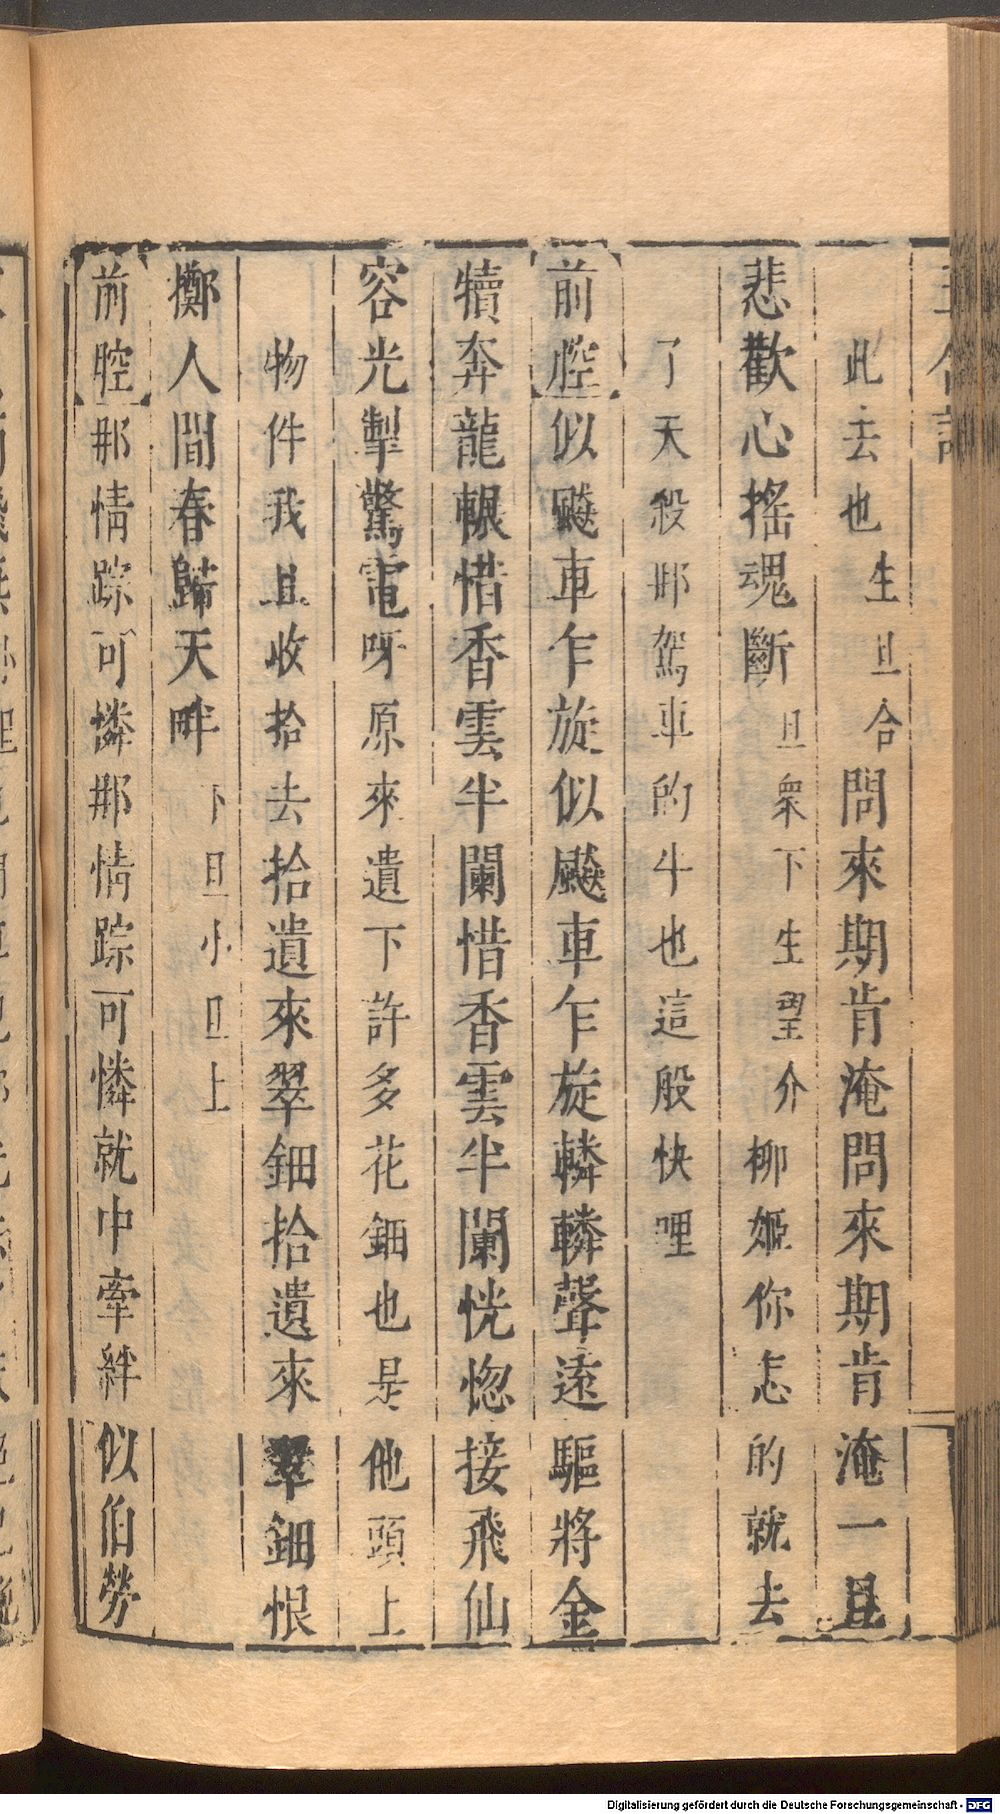 此去也生旦合問來期肯淹問來期肯淹一旦
悲歡心搖魂斷旦衆下生望介柳姬你怎的就去
了天殺那駕車的牛也這般快哩
前腔似飈車乍旋似飈車乍旋轔轔聲遠驅將金
犢奔龍輾惜香雲半闌惜香雲半闌恍惚接飛仙
容光掣驚電呀原來遺下許多花鈿也是他頭上
物件我且收拾去拾遺來翠鈿拾遺來翠鈿恨
擲人間春歸天畔下旦小旦上
前腔那情踪可憐那情踪可憐就中牽絆似伯勞
Digitalisierung gefördert durch die Deutsche Forschungsgemeinschaft - DFG